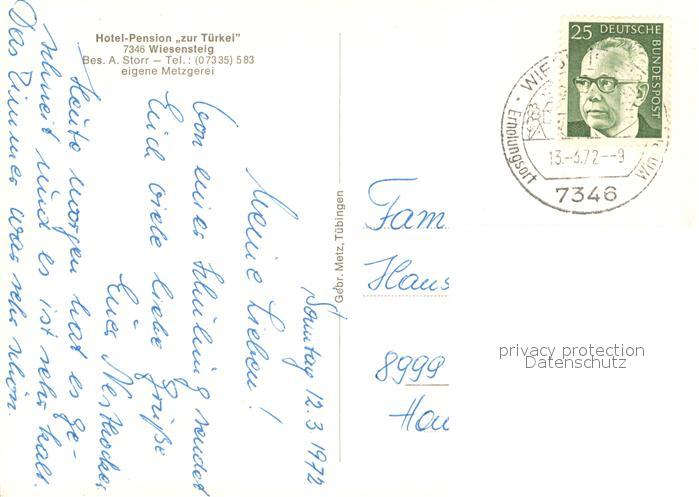 Hotel-Pension „zur Türkei"
7346 Wiesensteig
Bes. A. Storr – Tel.: (07335) 583
eigene Metzgerei
Sonntag 12.3.1972
Meine Lieben!
Von einer sendet
Euch viele liebe Grüße
Eure
Heute morgen hat es ge-
schneit und es ist sehr kalt.
Das Zimmer war sehr schön.
Gebr. Metz, Tübingen
25 DEUTSCHE BUNDESPOST
Erholungsort
13.-3.72--9
7346
Fam
Haus
8999
privacy protection
Datenschutz